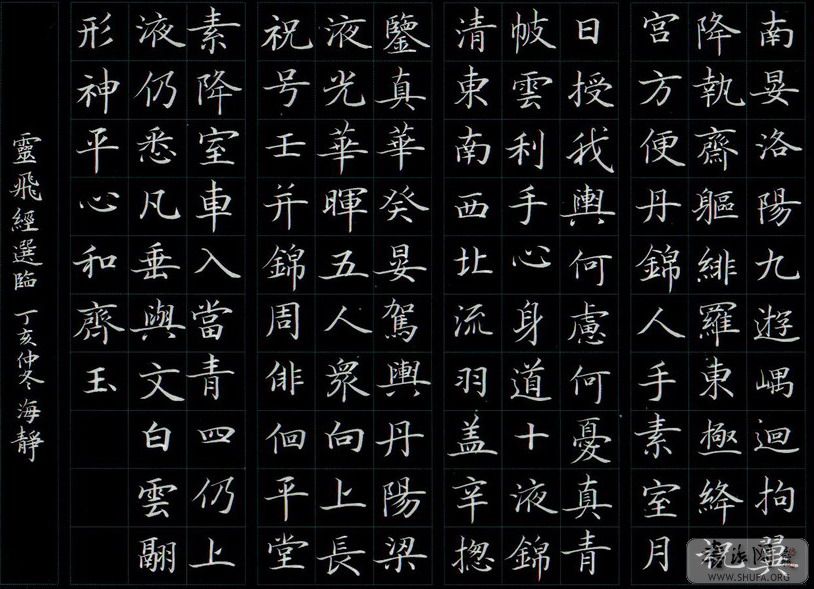 南晏洛陽九遊嵎迴拘翼
降執齋軀緋羅東極絳祝
宮方便丹錦人手素室月
日授我輿何慮何憂真青
帔雲利手心身道十液錦
清東南西北流羽盖辛揔
鑒真華癸晏駕輿丹陽梁
液光華暉五人衆向上長
祝号壬并錦周俳徊平堂
素降室車入當青四仍上
液仍悉凡垂與文白雲翮
形神平心和齊玉
靈飛經選臨 丁亥仲冬 海靜
WWW.SHUFA.ORG